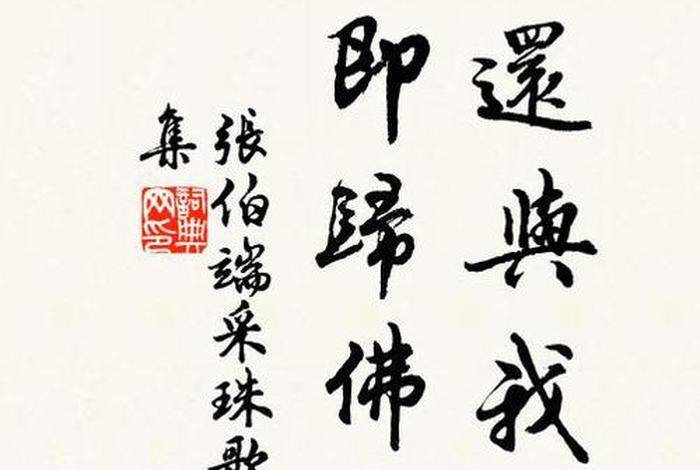 還與我
即歸佛
張伯端采珠歌
集
詞典網印